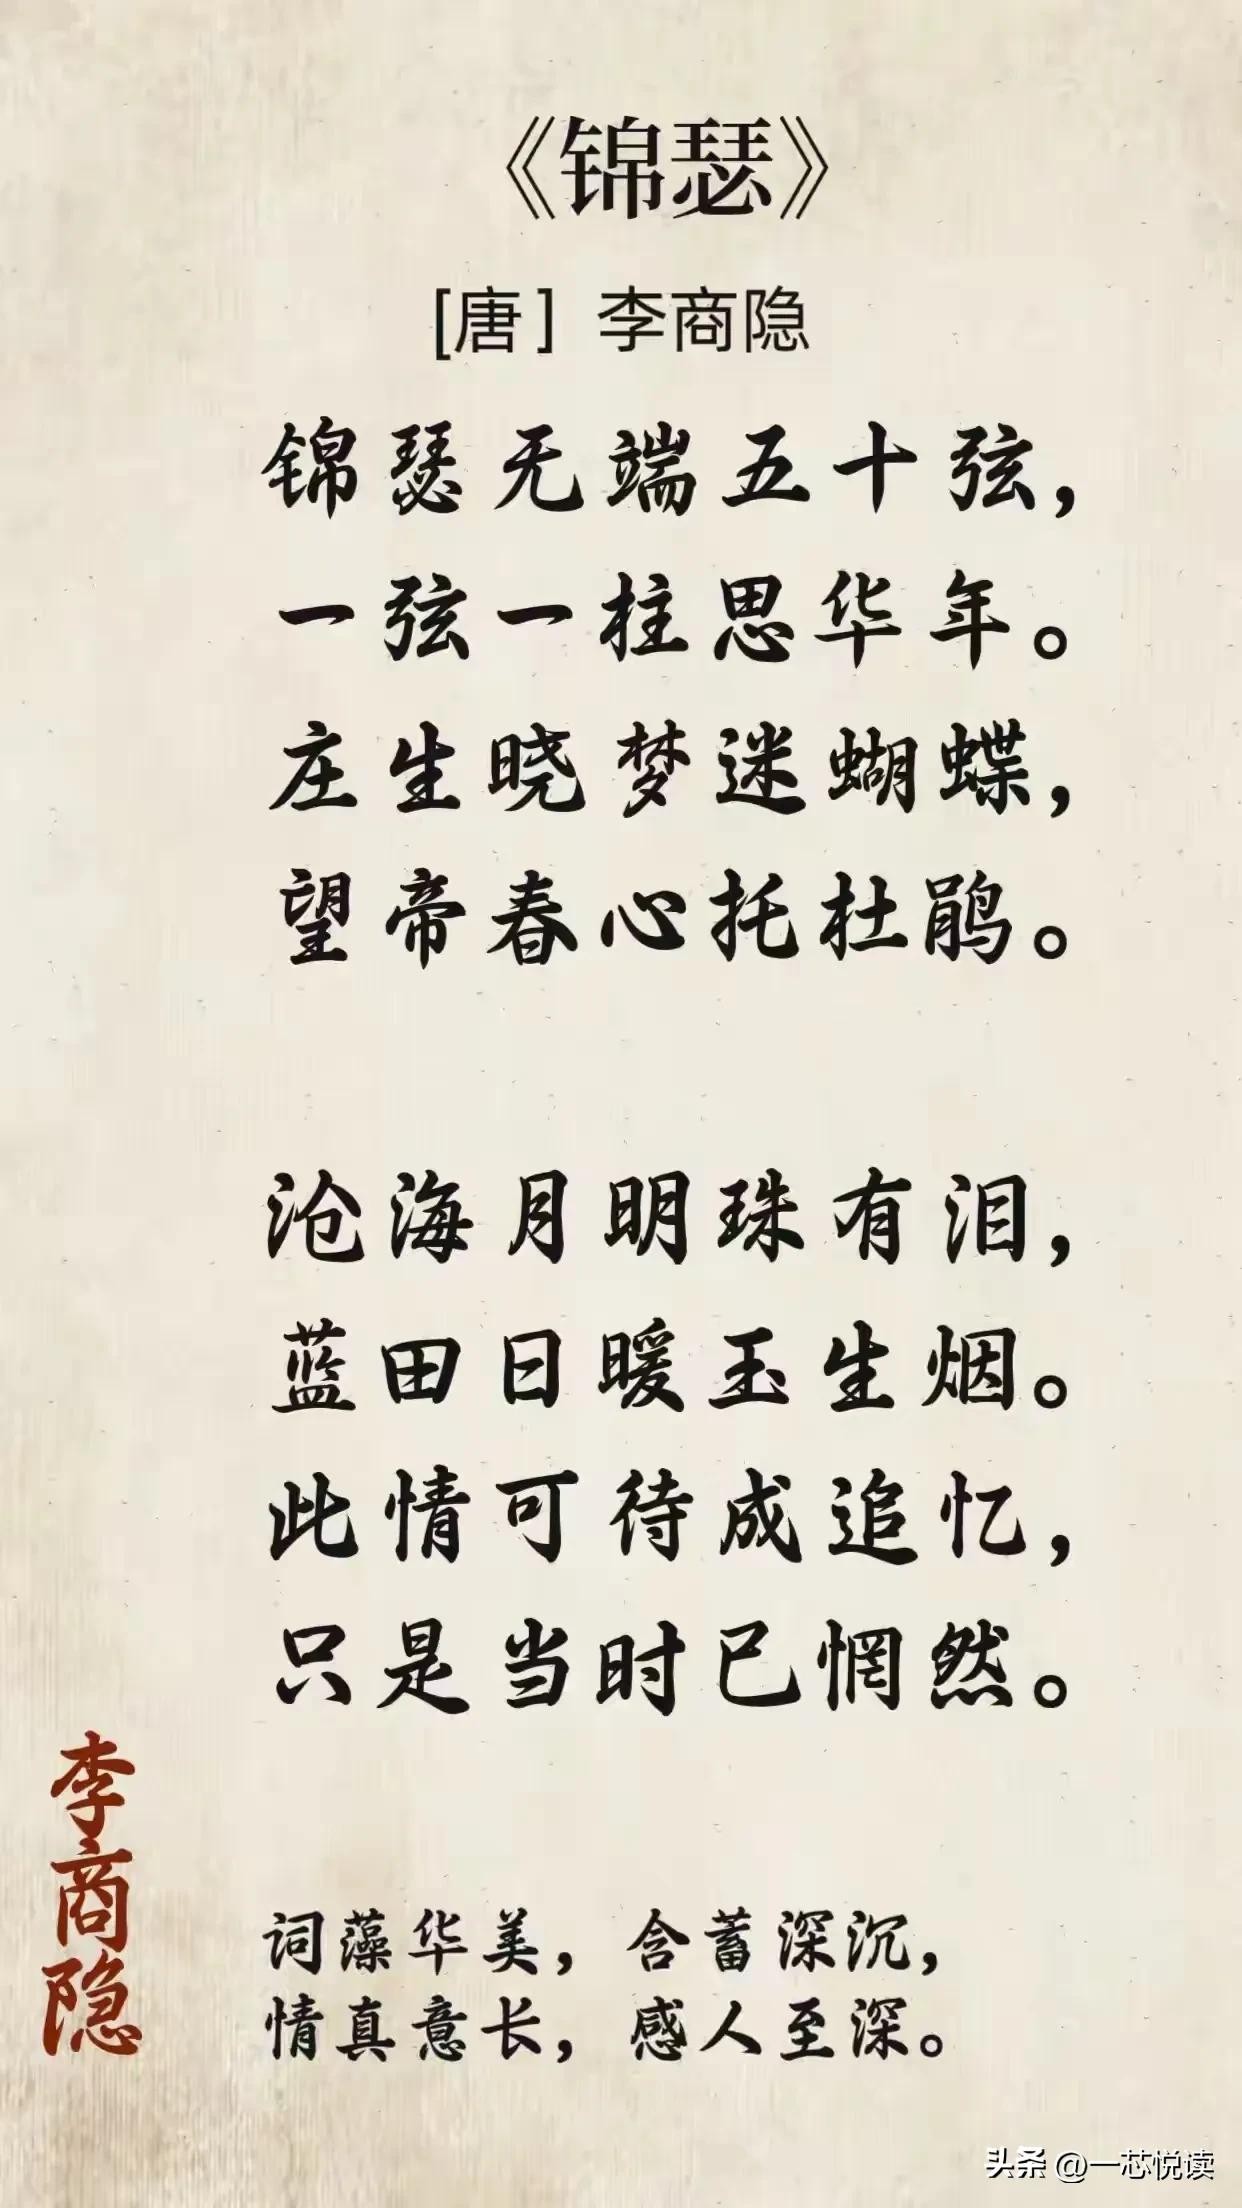 《锦瑟》
[唐] 李商隐
锦瑟无端五十弦，
一弦一柱思华年。
庄生晓梦迷蝴蝶，
望帝春心托杜鹃。
沧海月明珠有泪，
蓝田日暖玉生烟。
此情可待成追忆，
只是当时已惘然。
李商隐
词藻华美，含蓄深沉，
情真意长，感人至深。
头条 @一芯悦读